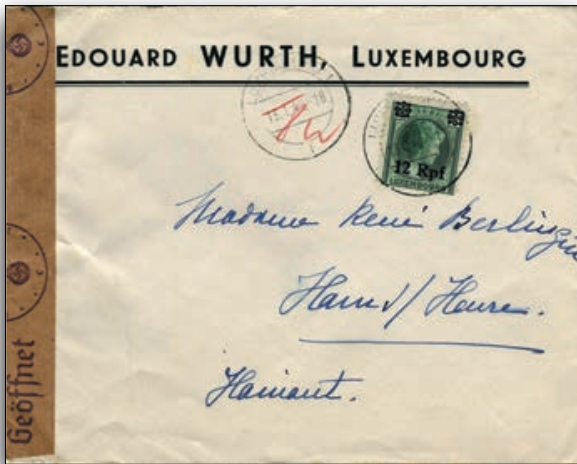 EDOUARD WURTH, LUXEMBOURG
12 Rpf
LUXEMBOURG
Madame René
Ham s/ Heure.
Hainaut.
Geöffnet